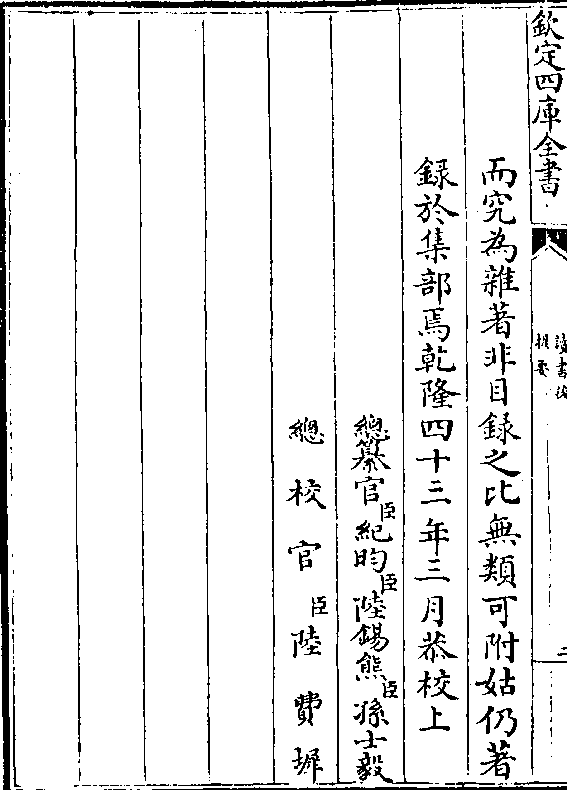 欽定四庫全書
讀書後
提要
二
而究為雜著非目録之比無類可附姑仍著
録於集部焉乾隆四十三年三月恭校上
總纂官臣紀昀臣陸錫熊臣孫士毅
總校官臣陸費墀